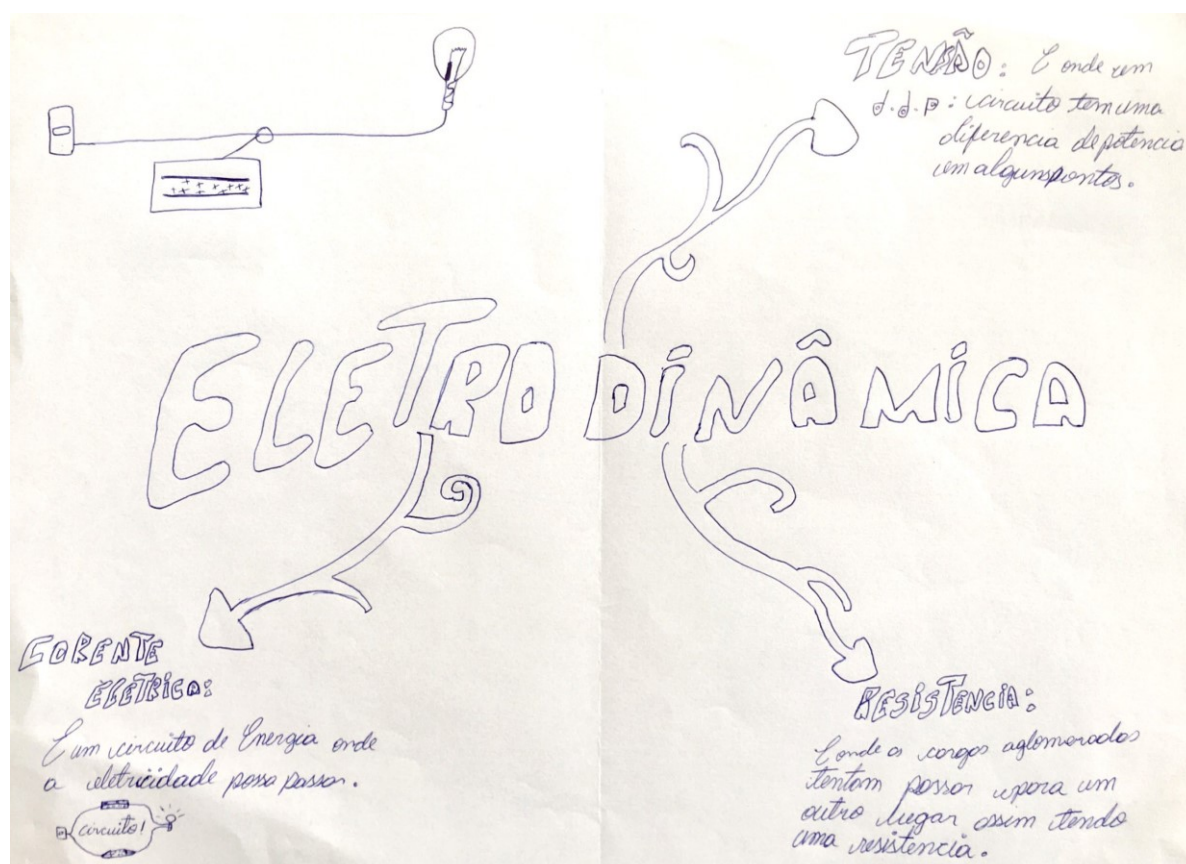 TENSÃO: É onde em
d.d.p: circuito tem uma
diferencia de potencia
em alguns pontos.
ELETRODINÂMICA
CORENTE
ELETRICA:
É um circuito de Energia onde
a eletricidade possa passar.
circuito!
RESISTENCIA:
É onde as cargas aglomeradas
tentam passar para um
outro lugar assim tendo
uma resistencia.